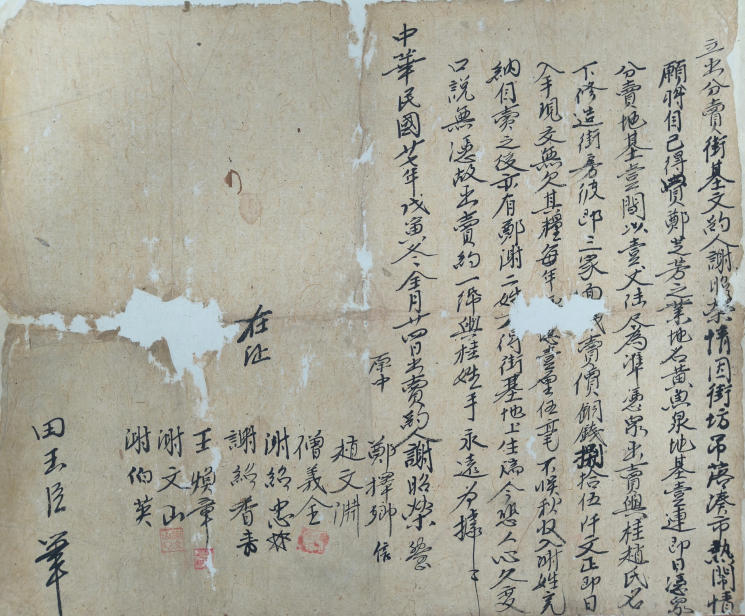 立出分賣街基文約人謝昭榮情因街坊吊落湊市熱鬧情
願將自己得買鄭芝芳之業地名黄魚泉地基壹連即日憑
分賣地基壹間以壹丈陸尺為準憑眾出賣與桂趙氏名
下修造街房彼即三家面賣價銅錢捌拾伍仟文正即日
入手現交無欠其糧每年壹厘伍毫不悮秋收入謝姓完
納自賣之後亦有鄭謝二姓街基地上住為今恐人心久變
口說無憑故出賣約一帋與桂姓手永遠為據
中華民國廿七年戊寅冬月廿四日出賣約人謝昭榮
原中
鄭擇鄉 信
趙文淵
僧義全
謝紹忠
謝紹香
在証
王煥章
謝文山
謝伯英
田玉臣 筆